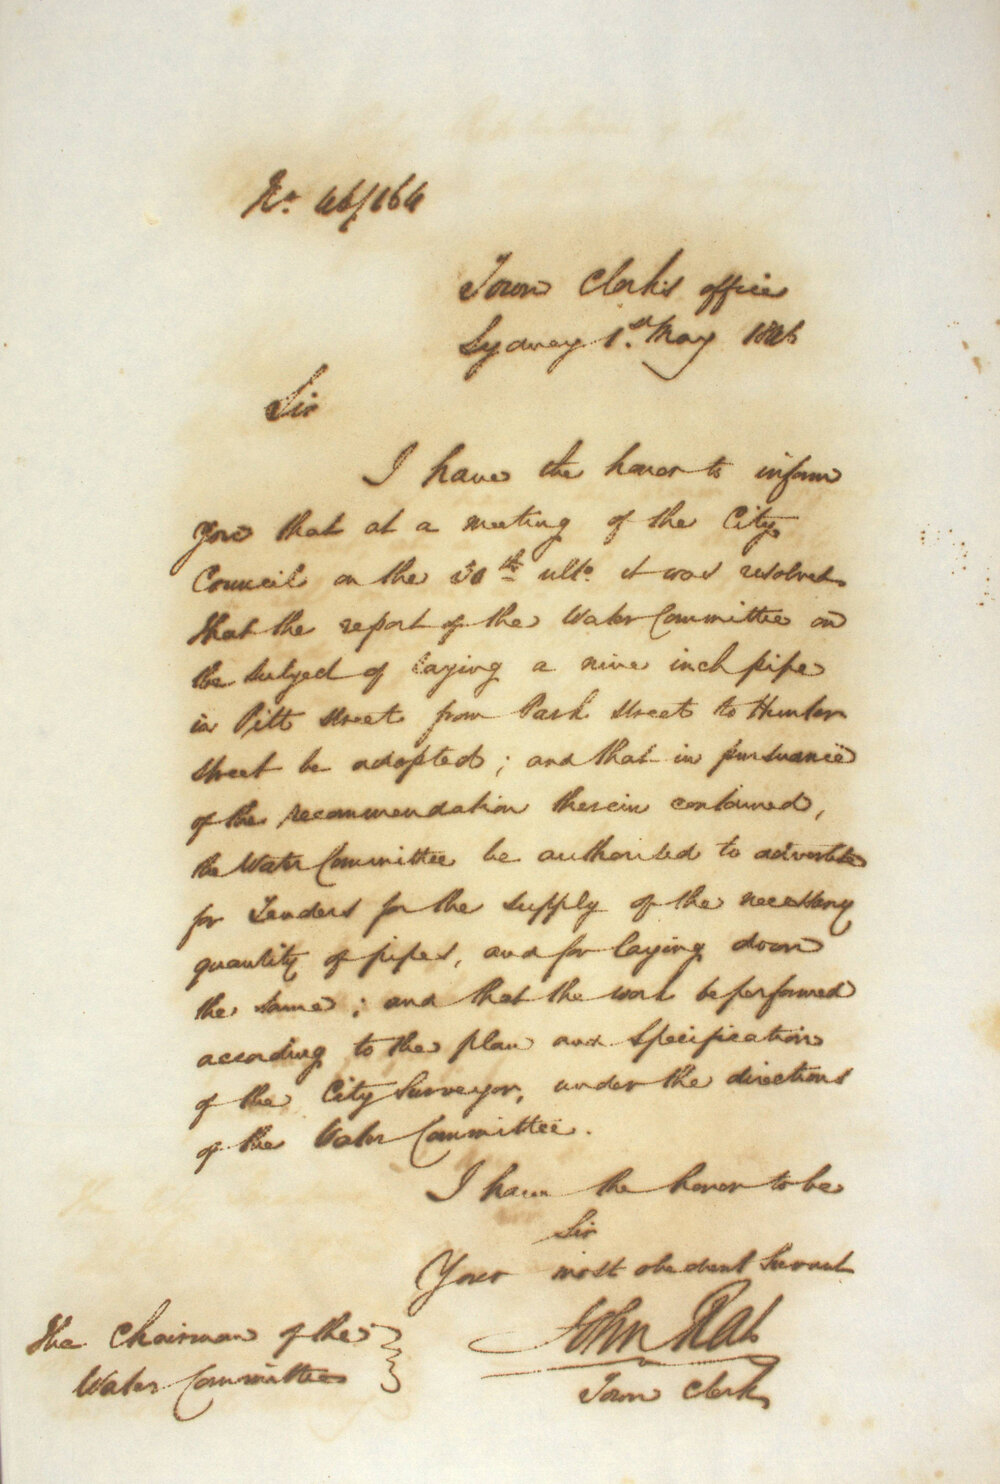 No. 46/164
Town Clerk's office
Sydney 1st May 1846
Sir
I have the honor to inform
you that at a meeting of the City
Council on the 30th ulto. it was resolved
that the report of the Water Committee on
the subject of laying a nine inch pipe
in Pitt street from Park street to Hunter
street be adopted; and that in pursuance
of the recommendation therein contained,
the Water Committee be authorised to advertise
for Tenders for the supply of the necessary
quantity of pipes, and for laying down
the same; and that the work be performed
according to the plan and specification
of the City Surveyor, under the directions
of the Water Committee.
I have the honor to be
Sir
Your most obedient Servant
John Rae
Town Clerk
The Chairman of the
Water Committee